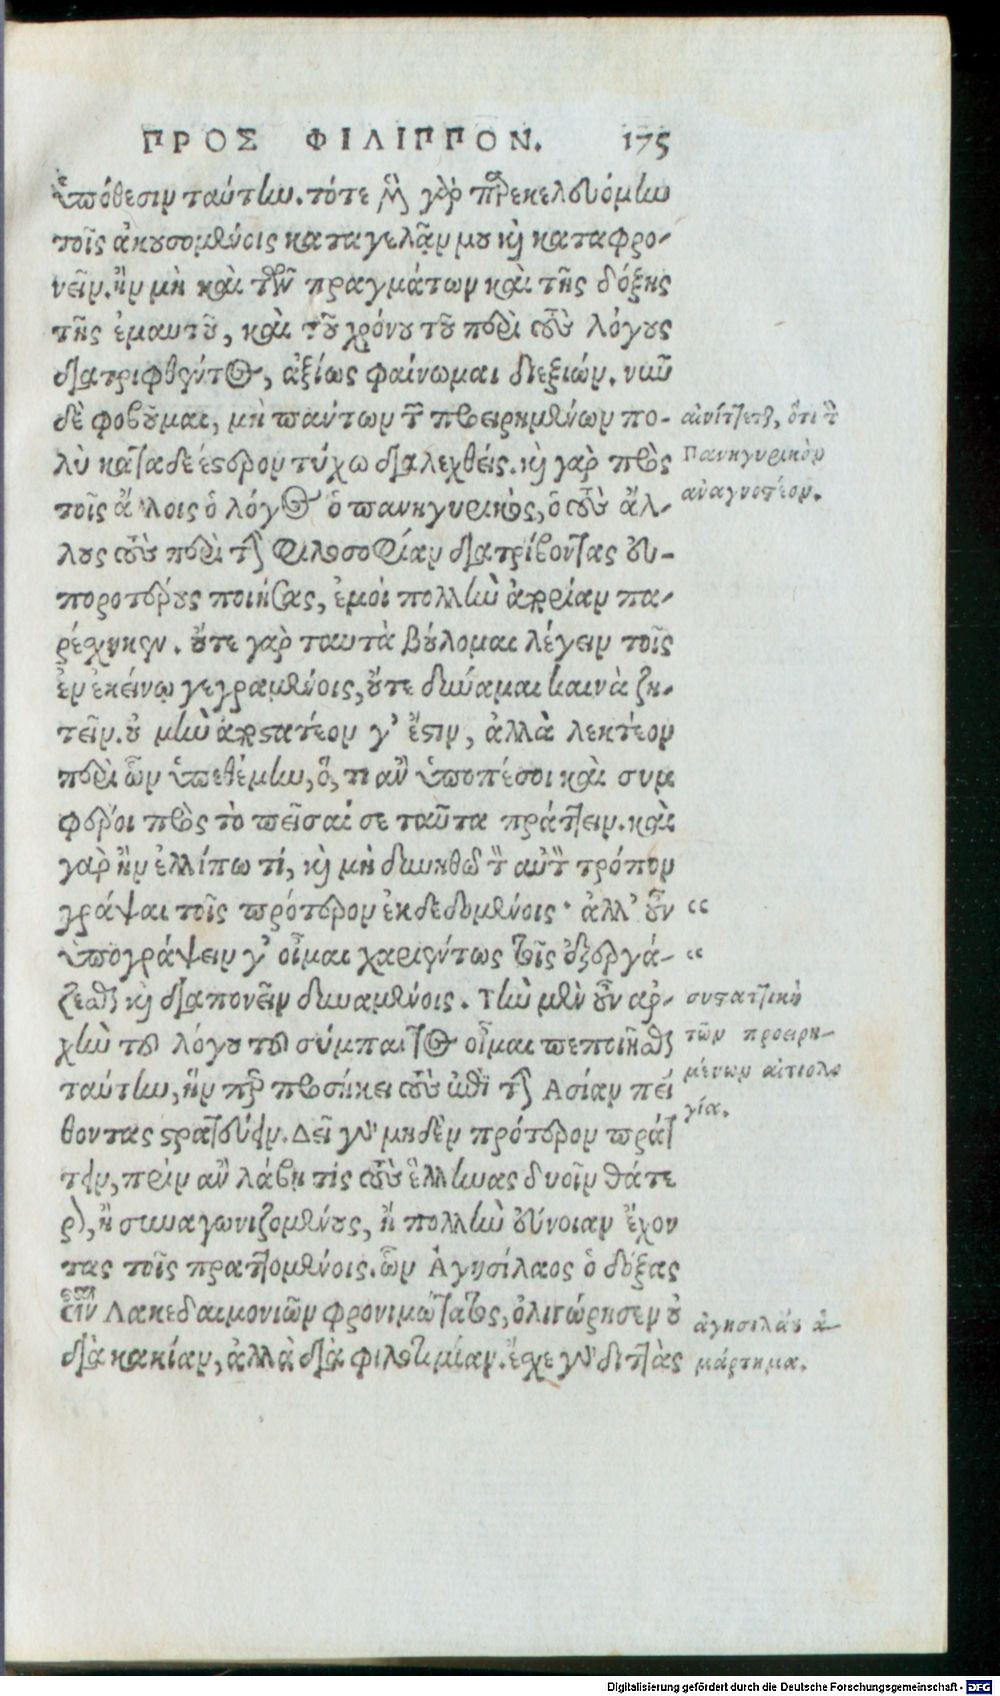 ΠΡΟΣ ΦΙΛΙΠΠΟΝ. 175
ὑπόθεσιν ταύτην. τότε μὲν γὰρ παρεκελευόμην
τοῖς ἀκουσομένοις καταγελᾶν μου καὶ καταφρο-
νεῖν, ἢν μὴ καὶ τῶν πραγμάτων καὶ τῆς δόξης
τῆς ἐμαυτοῦ, καὶ τοῦ χρόνου τοῦ περὶ τοὺς λόγους
διατριφθέντος, ἀξίως φαίνωμαι διεξιών. νῦν
δὲ φοβοῦμαι, μὴ πάντων τῶν προειρημένων πο-
λὺ καταδεέστερον τύχω διαλεχθείς. καὶ γὰρ πρὸς
τοῖς ἄλλοις ὁ λόγος ὁ πανηγυρικὸς, ὁ τοὺς ἄλ-
λους τοὺς περὶ τὴν φιλοσοφίαν διατρίβοντας εὐ-
πορωτέρους ποιήσας, ἐμοὶ πολλὴν ἀπορίαν πα-
ρέσχηκεν. οὔτε γὰρ ταυτὰ βούλομαι λέγειν τοῖς
ἐν ἐκείνῳ γεγραμμένοις, οὔτε δύναμαι καινὰ ζη-
τεῖν. οὐ μὴν ἀποστατέον γ' ἔστιν, ἀλλὰ λεκτέον
περὶ ὧν ὑπεθέμην, ὅ, τι ἂν ὑποπέσοι καὶ συμ
φέροι πρὸς τὸ πεῖσαί σε ταῦτα πράττειν. καὶ
γὰρ ἢν ἐλλίπω τί, καὶ μὴ δυνηθῶ τὸν αὐτὸν τρόπον
γράψαι τοῖς πρότερον ἐκδεδομένοις· ἀλλ' οὖν “
ὑπογράψειν γ' οἶμαι χαριέντως τοῖς ἐξεργά- “
ζεσθαι καὶ διαπονεῖν δυναμένοις. Τὴν μὲν οὖν ἀρ-
χὴν τοῦ λόγου τοῦ σύμπαντος οἶμαι πεποιῆσθαι
ταύτην, ἥν περ προσήκει τοὺς ἐπὶ τὴν Ἀσίαν πεί
θοντας στρατεύειν. Δεῖ γὰρ μηδὲν πρότερον πράτ
τειν, πρὶν ἂν λάβῃ τὶς τοὺς ἕλληνας δυοῖν θάτε
ρον, ἢ συναγωνιζομένους, ἢ πολλὴν εὔνοιαν ἔχον
τας τοῖς πραττομένοις. ὧν Ἀγησίλαος ὁ δόξας
εἶναι Λακεδαιμονίων φρονιμώτατος, ὀλιγώρησεν οὐ
διὰ κακίαν, ἀλλὰ διὰ φιλοτιμίαν. ἔσχε γὰρ διττὰς
αἰνίττεται, ὅτι τὸν
Πανηγυρικὸν
ἀναγνοστέον.
συστατικὴ
τῶν προειρη-
μένων αἰτιολο
γία.
ἀγησιλάου ἁ-
μάρτημα.
Digitalisierung gefördert durch die Deutsche Forschungsgemeinschaft - DFG